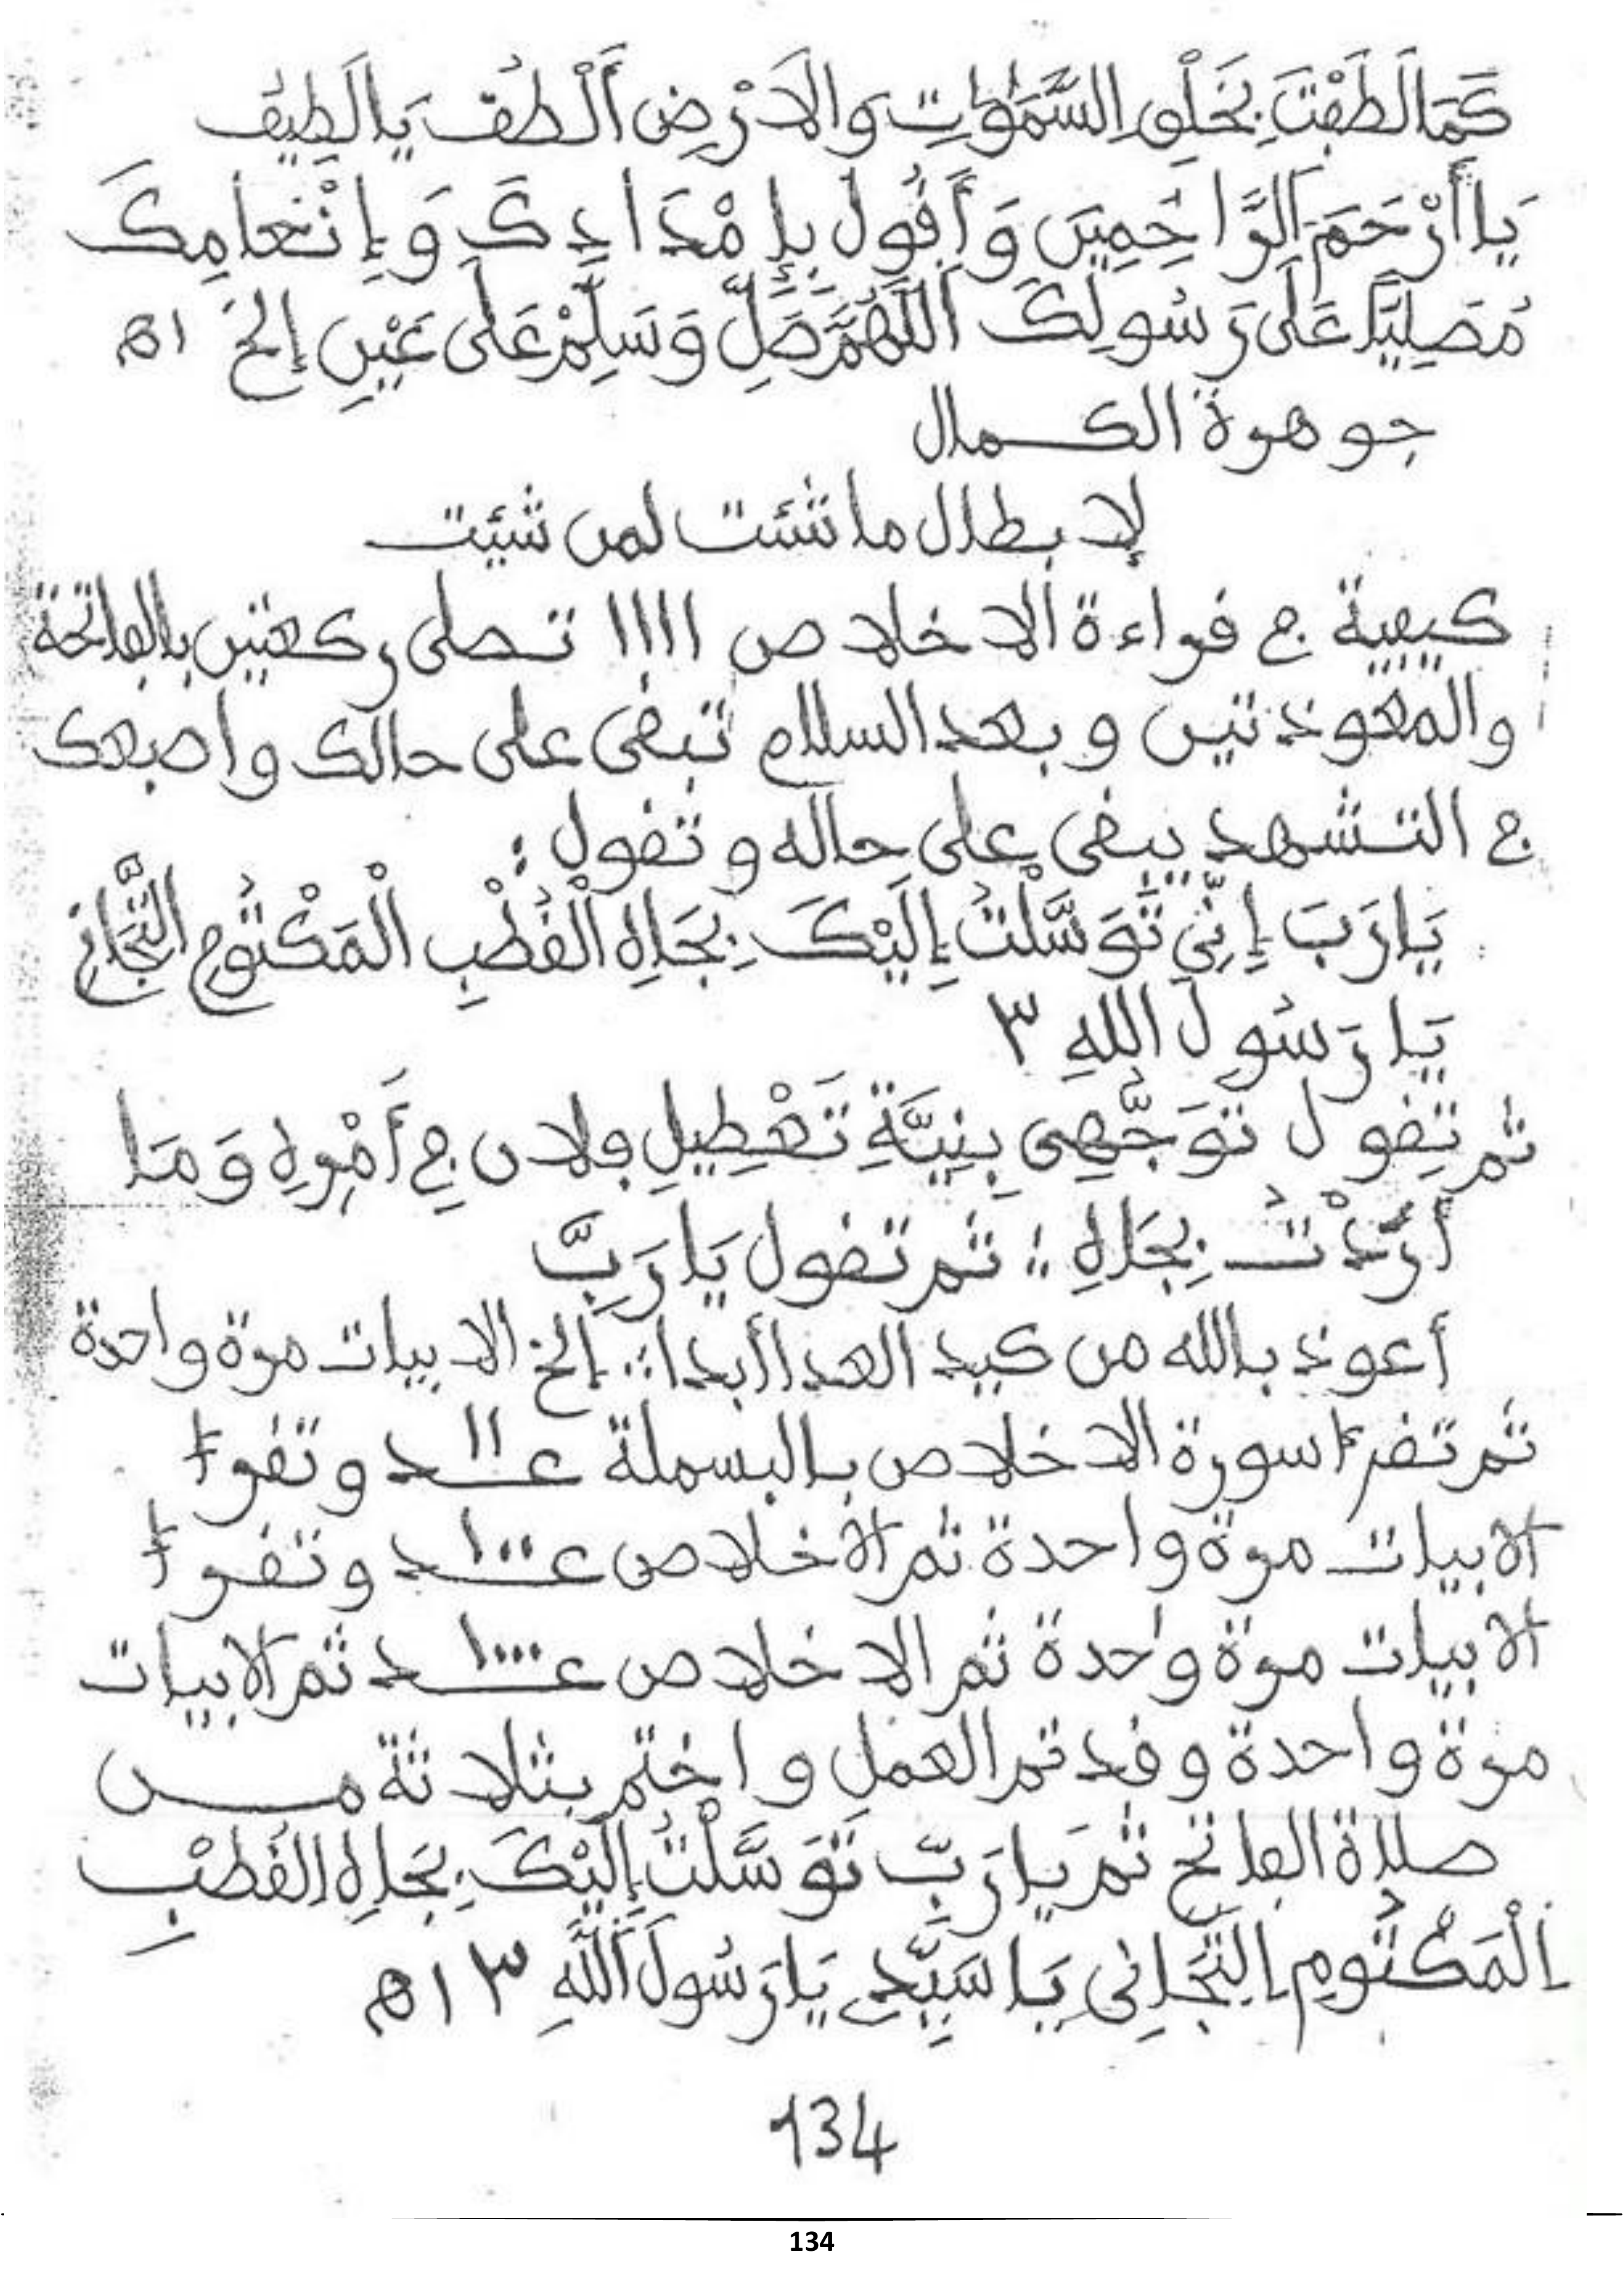 كَمَا لَطَفْتَ بِخَلْقِ السَّمَوَاتِ وَالاَرْضِ أُلْطُفْ يَا لَطِيفُ
يَا أَرْحَمَ الرَّاحِمِينَ وَأَقُولُ بِإِمْدَادِكَ وَإِنْعَامِكَ
مُصَلِّيًا عَلَى رَسُولِكَ اللَّهُمَّ صَلِّ وَسَلِّمْ عَلَى عَيْنِ إلخ اه
جوهرة الكمال
لإبطال ما شئت لمن شئت
كيفية في قراءة الاخلاص ١١١١ تصلى ركعتين بالفاتحة
والمعوذتين وبعد السلام تبقى على حالك واصبعك
في التشهد يبقى على حاله وتقول :
يَا رَبِّ إِنِّي تَوَسَّلْتُ إِلَيْكَ بِجَاهِ الْقُطْبِ الْمَكْتُومِ التِّجَانِي
يَا رَسُولَ اللهِ ٣
ثم تقول تَوَجُّهِي بِنِيَّةِ تَعْطِيلِ فلان فِي أَمْرِهِ وَمَا
أَرَدْتُ بِجَاهِ ؛؛ ثم تقول يَا رَبِّ
أعوذ بالله من كيد العدا أبدا ؛؛ إلخ الابيات مرة واحدة
ثم تقرأ سورة الاخلاص بالبسملة عـ١١ـدد وتقرأ
الابيات مرة واحدة ثم الاخلاص عـ١٠٠ـدد وتقرأ
الابيات مرة واحدة ثم الاخلاص عـ١٠٠٠ـدد ثم الابيات
مرة واحدة وقد تم العمل واختم بثلاثة مــن
صلاة الفاتح ثم يَا رَبِّ تَوَسَّلْتُ إِلَيْكَ بِجَاهِ القُطْبِ
الْمَكْتُومِ التِّجَانِى يَا سَيِّدِي يَا رَسُولَ اللَّهِ ٣ اه
134
134